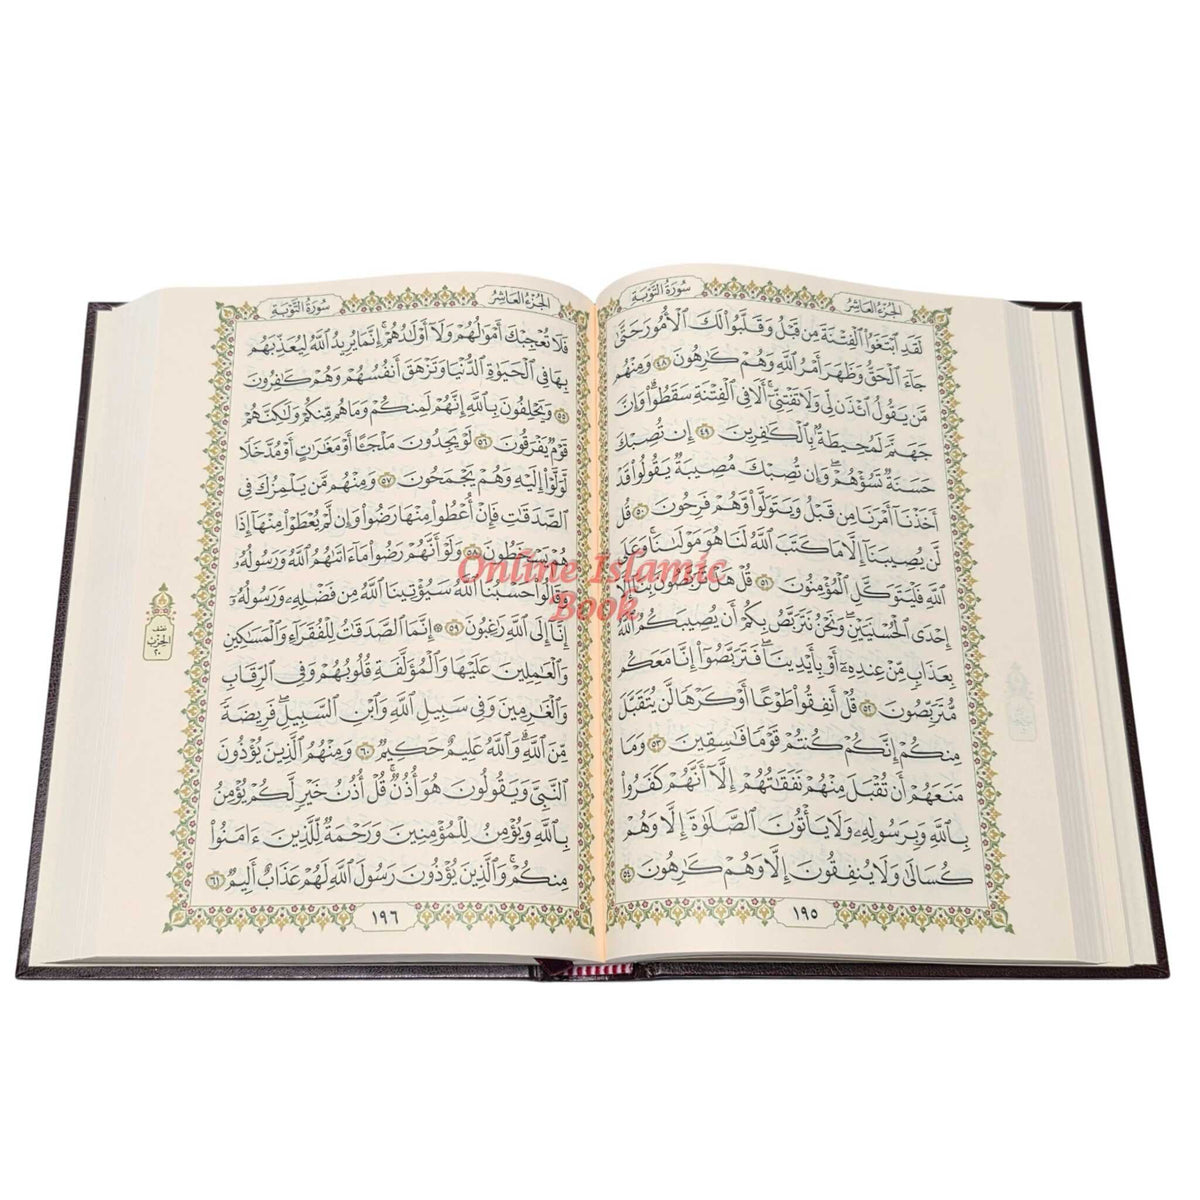 الجزء العاشر
سورة التوبة
لَقَدِ ٱبۡتَغَوُاْ ٱلۡفِتۡنَةَ مِن قَبۡلُ وَقَلَّبُواْ لَكَ ٱلۡأُمُورَ حَتَّىٰ
جَآءَ ٱلۡحَقُّ وَظَهَرَ أَمۡرُ ٱللَّهِ وَهُمۡ كَٰرِهُونَ ٤٨ وَمِنۡهُم
مَّن يَقُولُ ٱئۡذَن لِّي وَلَا تَفۡتِنِّيٓۚ أَلَا فِي ٱلۡفِتۡنَةِ سَقَطُواْۗ وَإِنَّ
جَهَنَّمَ لَمُحِيطَةُۢ بِٱلۡكَٰفِرِينَ ٤٩ إِن تُصِبۡكَ
حَسَنَةٞ تَسُؤۡهُمۡۖ وَإِن تُصِبۡكَ مُصِيبَةٞ يَقُولُواْ قَدۡ
أَخَذۡنَآ أَمۡرَنَا مِن قَبۡلُ وَيَتَوَلَّواْ وَّهُمۡ فَرِحُونَ ٥٠ قُل
لَّن يُصِيبَنَآ إِلَّا مَا كَتَبَ ٱللَّهُ لَنَا هُوَ مَوۡلَىٰنَاۚ وَعَلَى
ٱللَّهِ فَلۡيَتَوَكَّلِ ٱلۡمُؤۡمِنُونَ ٥١ قُلۡ هَلۡ تَرَبَّصُونَ بِنَآ إِلَّآ
إِحۡدَى ٱلۡحُسۡنَيَيۡنِۖ وَنَحۡنُ نَتَرَبَّصُ بِكُمۡ أَن يُصِيبَكُمُ ٱللَّهُ
بِعَذَابٖ مِّنۡ عِندِهِۦٓ أَوۡ بِأَيۡدِينَاۖ فَتَرَبَّصُوٓاْ إِنَّا مَعَكُم
مُّتَرَبِّصُونَ ٥٢ قُلۡ أَنفِقُواْ طَوۡعًا أَوۡ كَرۡهٗا لَّن يُتَقَبَّلَ
مِنكُمۡ إِنَّكُمۡ كُنتُمۡ قَوۡمٗا فَٰسِقِينَ ٥٣ وَمَا
مَنَعَهُمۡ أَن تُقۡبَلَ مِنۡهُمۡ نَفَقَٰتُهُمۡ إِلَّآ أَنَّهُمۡ كَفَرُواْ
بِٱللَّهِ وَبِرَسُولِهِۦ وَلَا يَأۡتُونَ ٱلصَّلَوٰةَ إِلَّا وَهُمۡ
كُسَالَىٰ وَلَا يُنفِقُونَ إِلَّا وَهُمۡ كَٰرِهُونَ ٥٤
١٩٥
الجزء العاشر
سورة التوبة
فَلَا تُعۡجِبۡكَ أَمۡوَٰلُهُمۡ وَلَآ أَوۡلَٰدُهُمۡۚ إِنَّمَا يُرِيدُ ٱللَّهُ لِيُعَذِّبَهُم
بِهَا فِي ٱلۡحَيَوٰةِ ٱلدُّنۡيَا وَتَزۡهَقَ أَنفُسُهُمۡ وَهُمۡ كَٰفِرُونَ
٥٥ وَيَحۡلِفُونَ بِٱللَّهِ إِنَّهُمۡ لَمِنكُمۡ وَمَا هُم مِّنكُمۡ وَلَٰكِنَّهُمۡ
قَوۡمٞ يَفۡرَقُونَ ٥٦ لَوۡ يَجِدُونَ مَلۡجَـًٔا أَوۡ مَغَٰرَٰتٍ أَوۡ مُدَّخَلٗا
لَّوَلَّوۡاْ إِلَيۡهِ وَهُمۡ يَجۡمَحُونَ ٥٧ وَمِنۡهُم مَّن يَلۡمِزُكَ فِي
ٱلصَّدَقَٰتِ فَإِنۡ أُعۡطُواْ مِنۡهَا رَضُواْ وَإِن لَّمۡ يُعۡطَوۡاْ مِنۡهَآ إِذَا
هُمۡ يَسۡخَطُونَ ٥٨ وَلَوۡ أَنَّهُمۡ رَضُواْ مَآ ءَاتَىٰهُمُ ٱللَّهُ وَرَسُولُهُۥ
وَقَالُواْ حَسۡبُنَا ٱللَّهُ سَيُؤۡتِينَا ٱللَّهُ مِن فَضۡلِهِۦ وَرَسُولُهُۥٓ
إِنَّآ إِلَى ٱللَّهِ رَٰغِبُونَ ٥٩ ۞ إِنَّمَا ٱلصَّدَقَٰتُ لِلۡفُقَرَآءِ وَٱلۡمَسَٰكِينِ
وَٱلۡعَٰمِلِينَ عَلَيۡهَا وَٱلۡمُؤَلَّفَةِ قُلُوبُهُمۡ وَفِي ٱلرِّقَابِ
وَٱلۡغَٰرِمِينَ وَفِي سَبِيلِ ٱللَّهِ وَٱبۡنِ ٱلسَّبِيلِۖ فَرِيضَةٗ
مِّنَ ٱللَّهِۗ وَٱللَّهُ عَلِيمٌ حَكِيمٞ ٦٠ وَمِنۡهُمُ ٱلَّذِينَ يُؤۡذُونَ
ٱلنَّبِيَّ وَيَقُولُونَ هُوَ أُذُنٞۚ قُلۡ أُذُنُ خَيۡرٖ لَّكُمۡ يُؤۡمِنُ
بِٱللَّهِ وَيُؤۡمِنُ لِلۡمُؤۡمِنِينَ وَرَحۡمَةٞ لِّلَّذِينَ ءَامَنُواْ
مِنكُمۡۚ وَٱلَّذِينَ يُؤۡذُونَ رَسُولَ ٱللَّهِ لَهُمۡ عَذَابٌ أَلِيمٞ ٦١
١٩٦
نصف
الحزب
٢٠
Online Islamic
Book